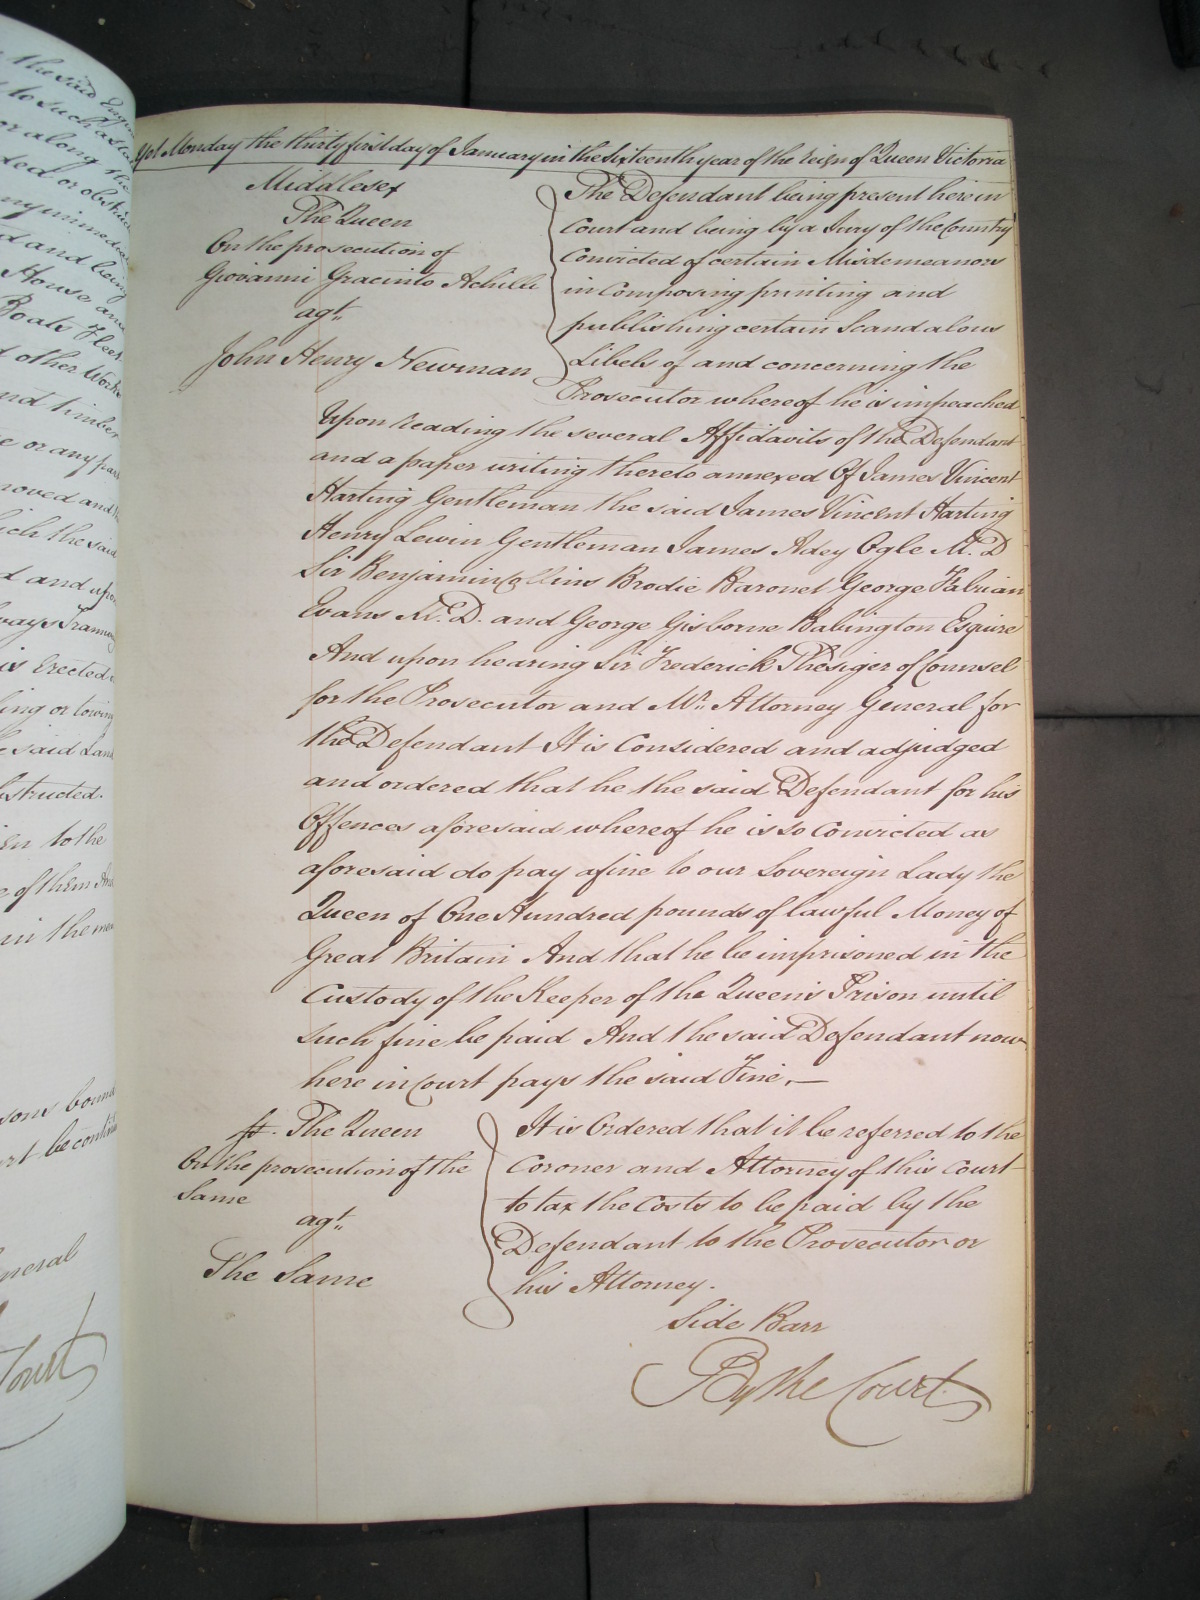 Yet Monday the thirty first day of January in the Sixteenth year of the Reign of Queen Victoria
Middlesex
The Queen
On the prosecution of
Giovanni Gracinto Achilli
agt.
John Henry Newman
The Defendant being present here in
Court and being by a Jury of the Country
Convicted of certain Misdemeanors
in Composing printing and
publishing certain Scandalous
Libels of and concerning the
Prosecutor whereof he is impeached
Upon reading the several Affidavits of the Defendant
and a paper writing thereto annexed Of James Vincent
Harting Gentleman the said James Vincent Harting
Henry Lewin Gentleman James Adey Ogle M.D
Sir Benjamin Collins Brodie Baronet George Fabrian
Evans M.D. and George Gisborne Babington Esquire
And upon hearing Sir Frederick Thesiger of Counsel
for the Prosecutor and Mr. Attorney General for
the Defendant It is Considered and adjudged
and ordered that he the said Defendant for his
Offences aforesaid whereof he is so Convicted as
aforesaid do pay a fine to our Sovereign Lady the
Queen of One Hundred pounds of lawful Money of
Great Britain And that he be imprisoned in the
Custody of the Keeper of the Queen's Prison until
such fine be paid And the said Defendant now
here in Court pays the said Fine. —
The Queen
On the prosecution of the
Same
agt.
The Same
It is Ordered that it be referred to the
Coroner and Attorney of this Court
to tax the Costs to be paid by the
Defendant to the Prosecutor or
his Attorney.
Side Barr
By the Court
the said
to such
or along the
House and
Boats
other Works
and timber
or any part
moved and
which the said
and upon
ways
is Erected
ing or towing
said Land
obstructed.
to the
of them And
in the
sons bound
General
Court